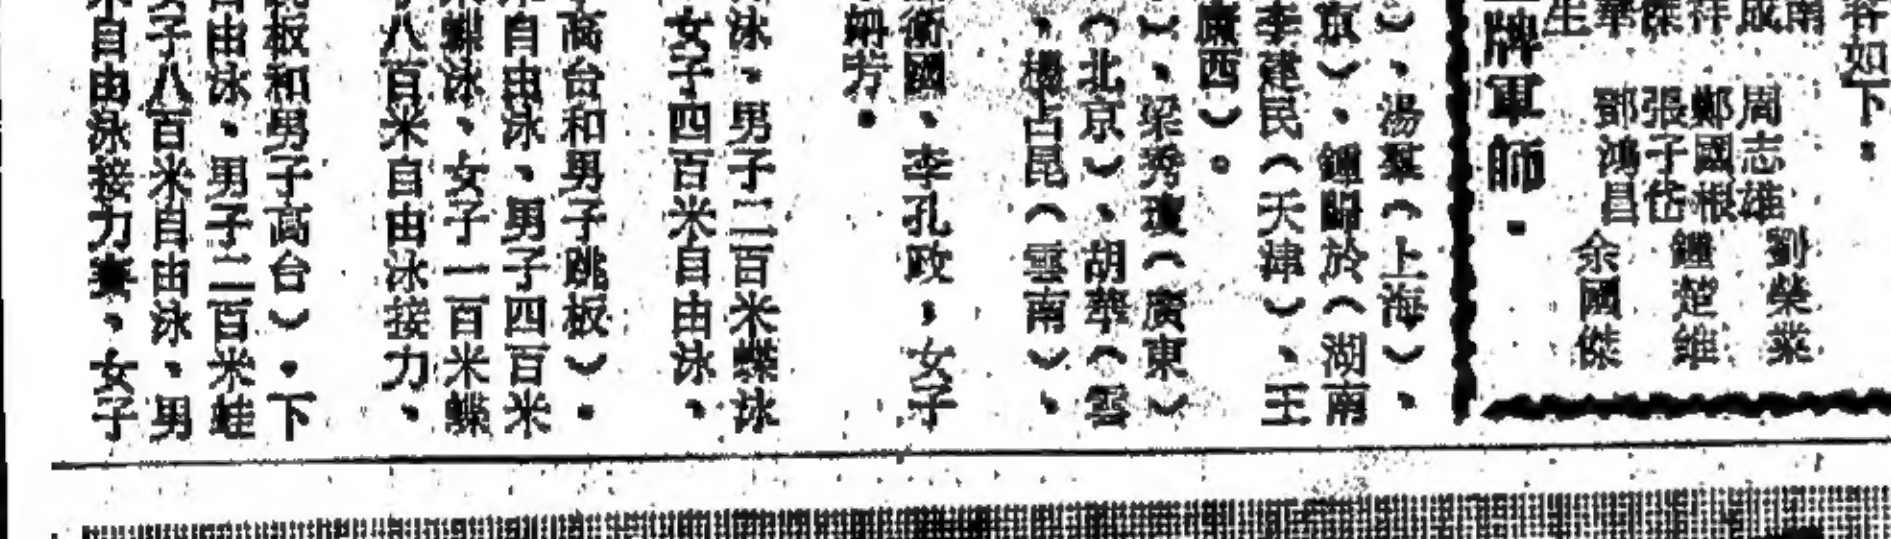 容如下：
南
成 周志雄 劉榮業
祥 鄭國根
傑 張子岱 鍾楚維
華 鄧鴻昌 余國傑
生
牌軍師．
）、湯羣（上海）、
京）、鍾歸於（湖南
李建民（天津）、王
廣西）。
）、梁秀瓊（廣東）
（北京）、胡華（雲
、楊占昆（雲南）、
衛國、李孔政，女子
姍芳．
泳．男子二百米蝶泳
女子四百米自由泳．
高台和男子跳板）．
自由泳、男子四百米
米蝶泳、女子一百米蝶
八百米自由泳接力、
跳板和男子高台）．下
自由泳．男子二百米蛙
女子八百米自由泳、男
米自由泳接力賽，女子